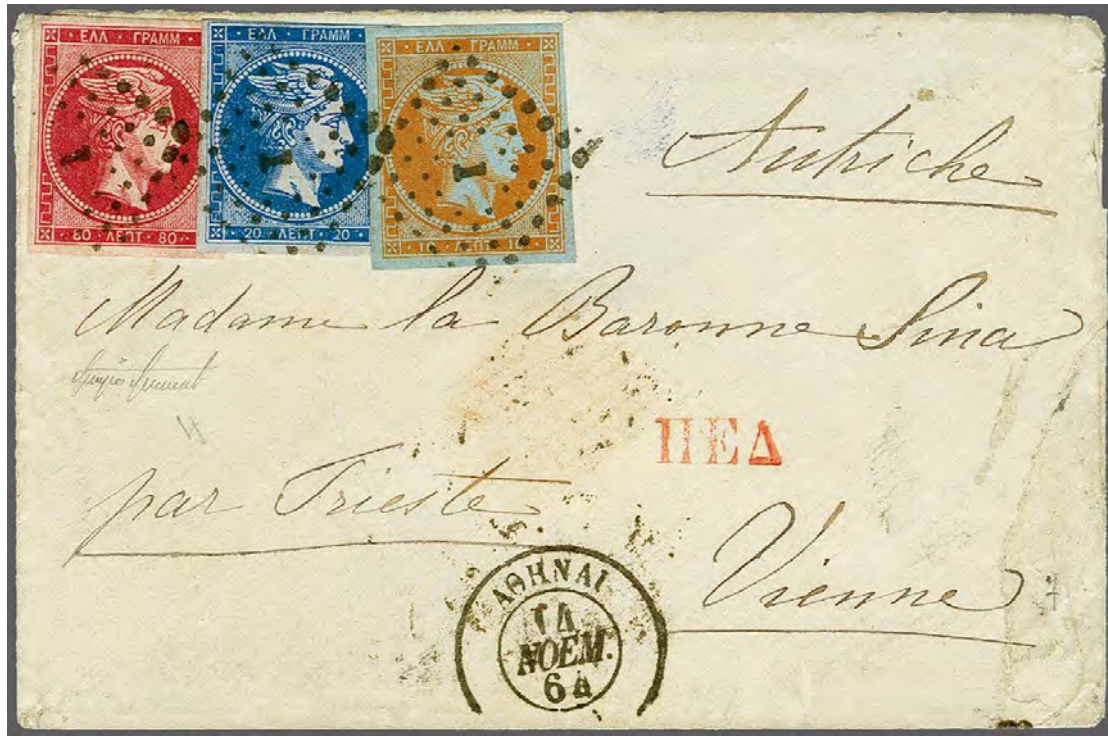 ΕΛΛ · ΓΡΑΜΜ
80 · ΛΕΠΤ · 80
1
ΕΛΛ · ΓΡΑΜΜ
20 · ΛΕΠΤ · 20
1
ΕΛΛ · ΓΡΑΜΜ
10 · ΛΕΠΤ · 10
1
Autriche
Madame la Baronne Sina
ΠΕΔ
par Trieste
Vienne
ΑΘΗΝΑΙ
14
ΝΟΕΜ.
64